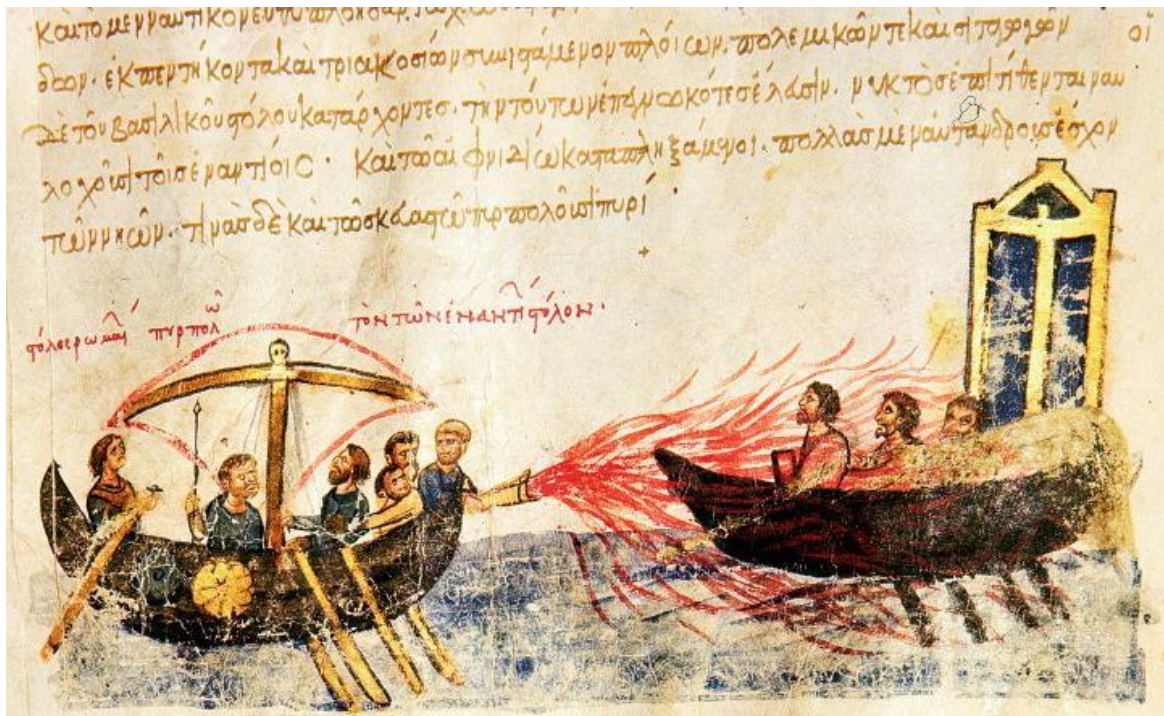 Καὶ τὸ μὲν ναυτικὸν
δων· ἐκ πεντήκοντα καὶ τριακοσίων συνιστάμενον πλοίων· πολεμικῶν τε καὶ σιτοφόρων οἱ
δὲ τοῦ βασιλικοῦ στόλου κατάρχοντες· τὴν τούτων ἐπεγνωκότες ἔλασιν· νυκτὸς ἐπιτίθενται ναυ
λοχοῦσι τοῖς ἐναντίοις· Καὶ τῶ αἰφνιδίω καταπληξάμενοι· πολλὰς μὲν αὐτάνδρους ἔσχον
τῶν νηῶν· τινὰς δὲ καὶ πυρπολοῦσι πυρί·
στόλος ῥωμαί πυρπολῶ τὸν τῶν ἐναντί στόλον·